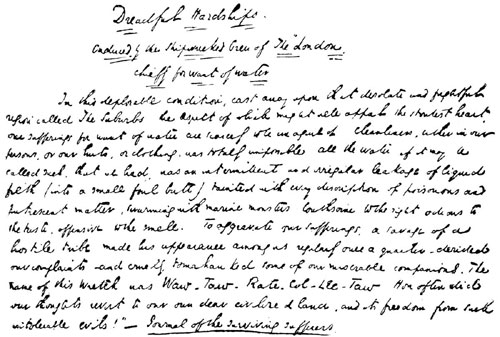 Dreadful Hardships.
Endured by the Shipwrecked Crew of The "London,
chiefly for want of water
In this deplorable condition, cast away upon that desolate and frightful
region called The Suburbs the aspect of which might well appall the stoutest heart,
our sufferings for want of water are scarcely to be imagined. Cleanliness, either in our
persons, or our huts, or clothing, was totally impossible all the water if it may be
called such, that we had, was an intermittent and irregular leakage of liquid
filth (into a small foul butt) tainted with every description of poisonous and
putrescent matter, swarming with marine monsters loathsome to the sight odious to
the taste, offensive to the smell. To aggravate our sufferings, a savage of a
hostile tribe made his appearance among us regularly once a quarter - derided
our complaints - and cruelly tomahawked some of our miserable companions. The
name of this wretch was Waw-Taw-Rate-Col-Lec-Taw How often did
our thoughts revert to our own dear civilized land, and its freedom from such
intolerable evils!" — Journal of the surviving sufferers